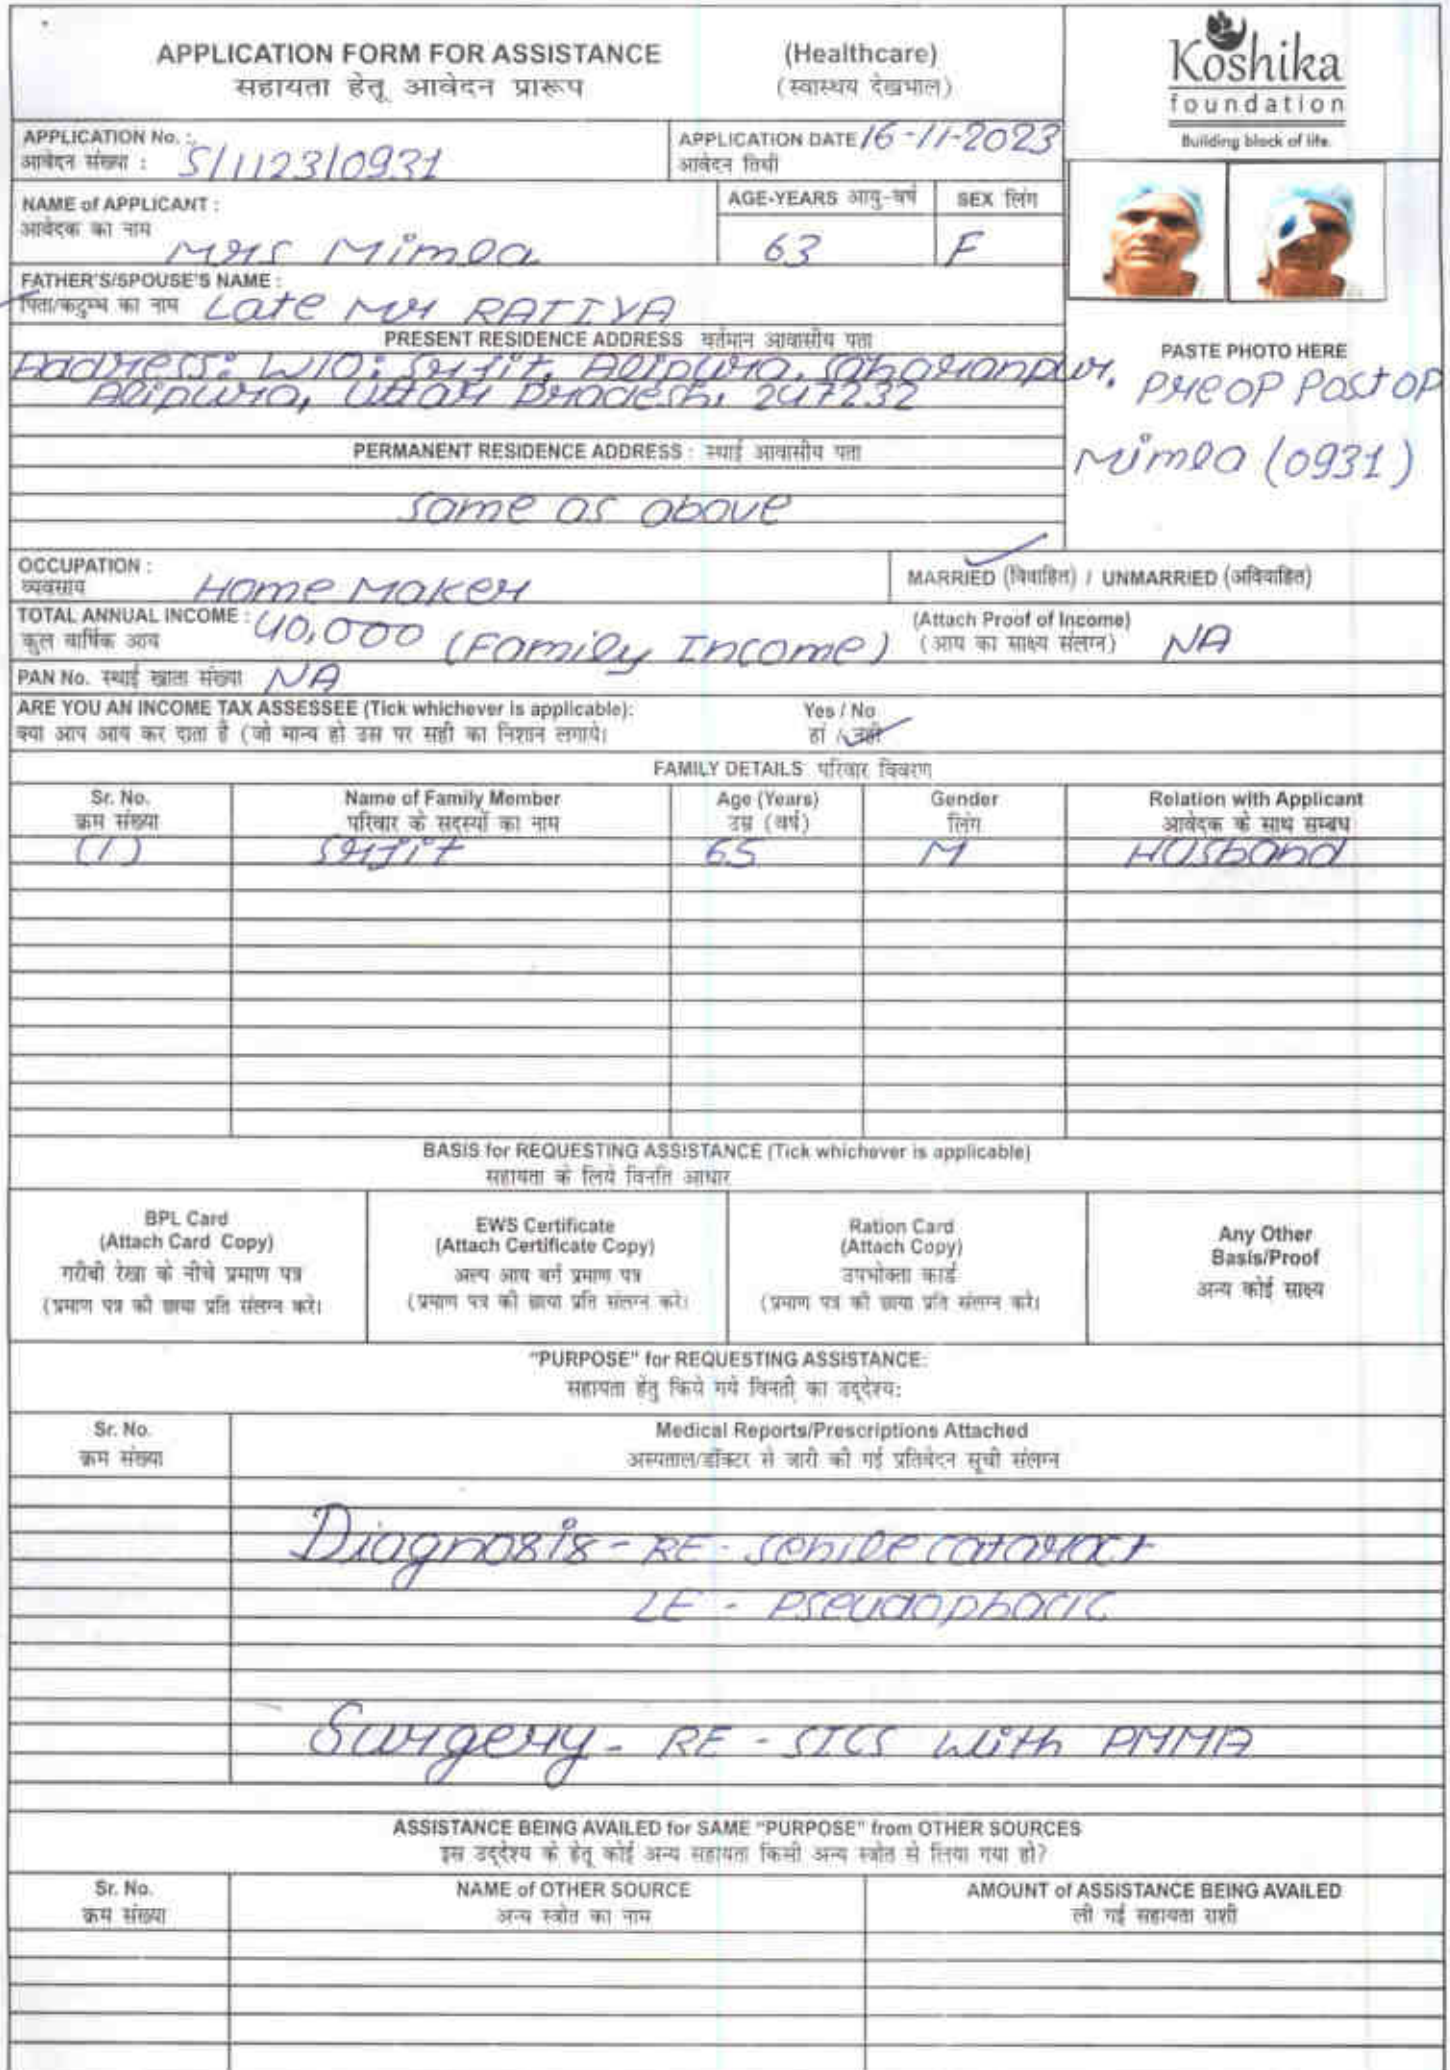 APPLICATION FORM FOR ASSISTANCE (Healthcare)
सहायता हेतू आवेदन प्रारूप (स्वास्थय देखभाल)
Koshika
foundation
Building block of life.
APPLICATION No. : S/1123/0931
आवेदन संख्या :
APPLICATION DATE 16-11-2023
आवेदन तिथी
NAME of APPLICANT :
आवेदक का नाम
Mrs Mimla
AGE-YEARS आयु-वर्ष
63
SEX लिंग
F
FATHER'S/SPOUSE'S NAME :
पिता/कटुम्भ का नाम Late Mr RATIYA
PRESENT RESIDENCE ADDRESS वर्तमान आवासीय पता
Address: W/O: Srjit, Alipura, Saharanpur,
Alipura, Uttar Pradesh, 247232
PASTE PHOTO HERE
PreOP Post OP
Mimla (0931)
PERMANENT RESIDENCE ADDRESS : स्थाई आवासीय पता
Same as above
OCCUPATION :
व्यवसाय Home Maker
MARRIED (विवाहित) / UNMARRIED (अविवाहित)
TOTAL ANNUAL INCOME : 40,000 (Family Income)
कुल वार्षिक आय
(Attach Proof of Income)
(आय का साक्ष्य संलग्न) NA
PAN No. स्थाई खाता संख्या NA
ARE YOU AN INCOME TAX ASSESSEE (Tick whichever is applicable): Yes / No
क्या आप आय कर दाता है (जो मान्य हो उस पर सही का निशान लगाये। हां / नही
FAMILY DETAILS परिवार विवरण
Sr. No. Name of Family Member Age (Years) Gender Relation with Applicant
क्रम संख्या परिवार के सदस्यों का नाम उम्र (वर्ष) लिंग आवेदक के साथ सम्बध
(1) Srjit 65 M Husband
BASIS for REQUESTING ASSISTANCE (Tick whichever is applicable)
सहायता के लिये विनति आधार
BPL Card
(Attach Card Copy)
गरीबी रेखा के नीचे प्रमाण पत्र
(प्रमाण पत्र की छाया प्रति संलग्न करे।
EWS Certificate
(Attach Certificate Copy)
अल्प आय वर्ग प्रमाण पत्र
(प्रमाण पत्र की छाया प्रति संलग्न करे।
Ration Card
(Attach Copy)
उपभोक्ता कार्ड
(प्रमाण पत्र की छाया प्रति संलग्न करे।
Any Other
Basis/Proof
अन्य कोई साक्ष्य
"PURPOSE" for REQUESTING ASSISTANCE:
सहायता हेतु किये गये विनती का उद्देश्य:
Sr. No. Medical Reports/Prescriptions Attached
क्रम संख्या अस्पताल/डॉक्टर से जारी की गई प्रतिवेदन सूची संलग्न
Diagnosis - RE - Senile cataract
LE - Pseudophacic
Surgery - RE - SICS with PMMA
ASSISTANCE BEING AVAILED for SAME "PURPOSE" from OTHER SOURCES
इस उद्देश्य के हेतू कोई अन्य सहायता किसी अन्य स्त्रोत से लिया गया हो?
Sr. No. NAME of OTHER SOURCE AMOUNT of ASSISTANCE BEING AVAILED
क्रम संख्या अन्य स्त्रोत का नाम ली गई सहायता राशी